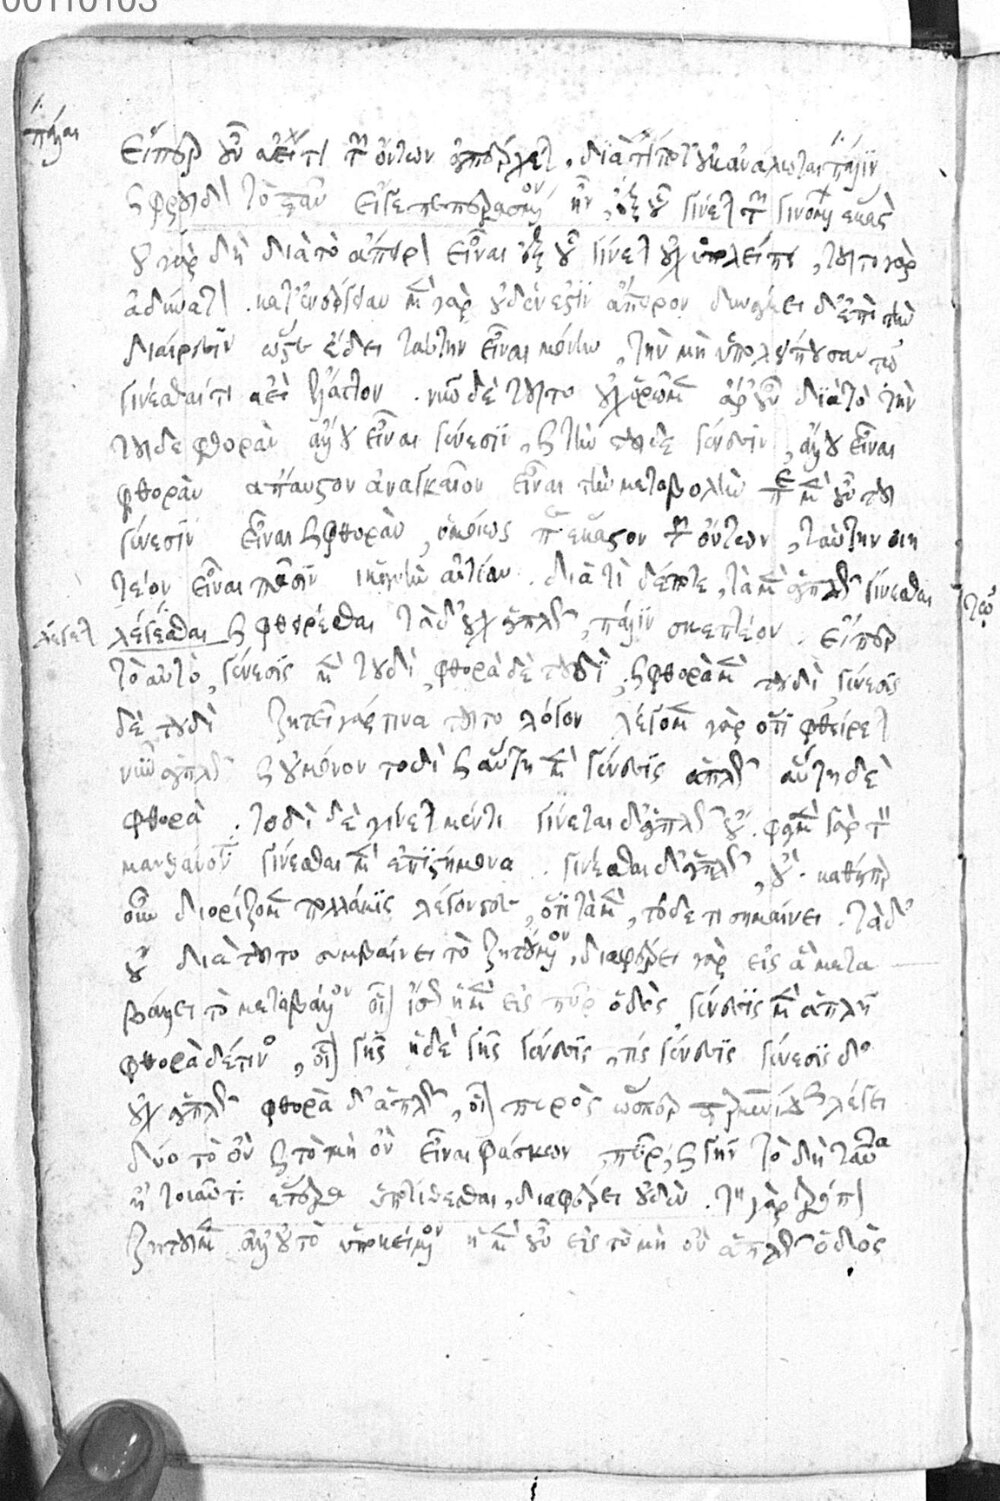 πάλαι
Εἴπερ οὖν ἀεί τι τῶν ὄντων ἀπέρχεται, διὰ τί ποτ' οὐκ ἀνάλωται πάλιν
καὶ φροῦδον τὸ πᾶν εἴ γε πεπερασμένον ἦν, ἐξ οὗ γίνεται τῶν γινομένων ἕκαστον
οὐ γὰρ δὴ διὰ τὸ ἄπειρον εἶναι ἐξ οὗ γίνεται οὐχ ὑπολείπει, τοῦτο γὰρ
ἀδύνατον. κατ' ἐνέργειαν μὲν γὰρ οὐδέν ἐστιν ἄπειρον δυνάμει δ' ἐπὶ τὴν
διαίρεσιν ὥστ' ἔδει ταύτην εἶναι μόνην, τὴν μὴ ὑπολείπουσαν τῷ
γίνεσθαί τι ἀεὶ ἔλαττον. νῦν δὲ τοῦτο οὐχ ὁρῶμεν ἆρ' οὖν διὰ τὸ τὴν
τοῦδε φθορὰν ἄλλου εἶναι γένεσιν, καὶ τὴν τοῦδε γένεσιν, ἄλλου εἶναι
φθορὰν ἄπαυστον ἀναγκαῖον εἶναι τὴν μεταβολὴν περὶ μὲν οὖν τοῦ
γένεσιν εἶναι καὶ φθορὰν, ὁμοίως περὶ ἕκαστον τῶν ὄντων, ταύτην οἰη
τέον εἶναι πᾶσιν ἱκανὴν αἰτίαν. διὰ τί δέ ποτε, τὰ μὲν ἁπλῶς γίνεσθαι
λέγεται λέγεσθαι καὶ φθείρεσθαι τὰ δ' οὐχ ἁπλῶς, πάλιν σκεπτέον. εἴπερ
τὸ αὐτὸ, γένεσις μὲν τουδὶ, φθορὰ δὲ τουδὶ, καὶ φθορὰ μὲν τουδὶ γένεσις
δὲ τουδὶ ζητεῖ γάρ τινα τοῦτο λόγον λέγομεν γὰρ ὅτι φθείρεται
νῦν ἁπλῶς καὶ οὐ μόνον τοδὶ καὶ αὕτη μὲν γένεσις ἁπλῶς αὕτη δὲ
φθορά. τοδὶ δὲ γίνεται μέν τι γίνεται δ' ἁπλῶς οὔ. φαμὲν γὰρ τὸν
μανθάνοντα γίνεσθαι μὲν ἐπιστήμονα. γίνεσθαι δ' ἁπλῶς, οὔ. καθάπερ
οὖν διορίζομεν πολλάκις λέγοντες, ὅτι τὰ μὲν, τόδε τι σημαίνει. τὰ δ'
οὔ διὰ τοῦτο συμβαίνει τὸ ζητούμενον, διαφέρει γὰρ εἰς ἃ μετα
βάλλει τὸ μεταβάλλον οἷον ἴσως ἡ μὲν εἰς πῦρ ὁδὸς γένεσις μὲν ἁπλῆ
φθορὰ δέ τινος, οἷον γῆς ἡ δὲ γῆς γένεσις, τὶς γένεσις γένεσις δ'
οὐχ ἁπλῶς φθορὰ δ' ἁπλῶς, οἷον πυρὸς ὥσπερ παρμενίδης λέγει
δύο τὸ ὂν καὶ τὸ μὴ ὂν εἶναι φάσκων, πῦρ, καὶ γῆν τὸ δὴ ταῦτα
ἢ τοιαῦτα ἕτερα ὑποτίθεσθαι, διαφέρει οὐδὲν. τὸν γὰρ τρόπον
ζητοῦμεν ἀλλ' οὐ τὸ ὑποκείμενον ἡ μὲν οὖν εἰς τὸ μὴ ὂν ἁπλῶς ὁδὸς